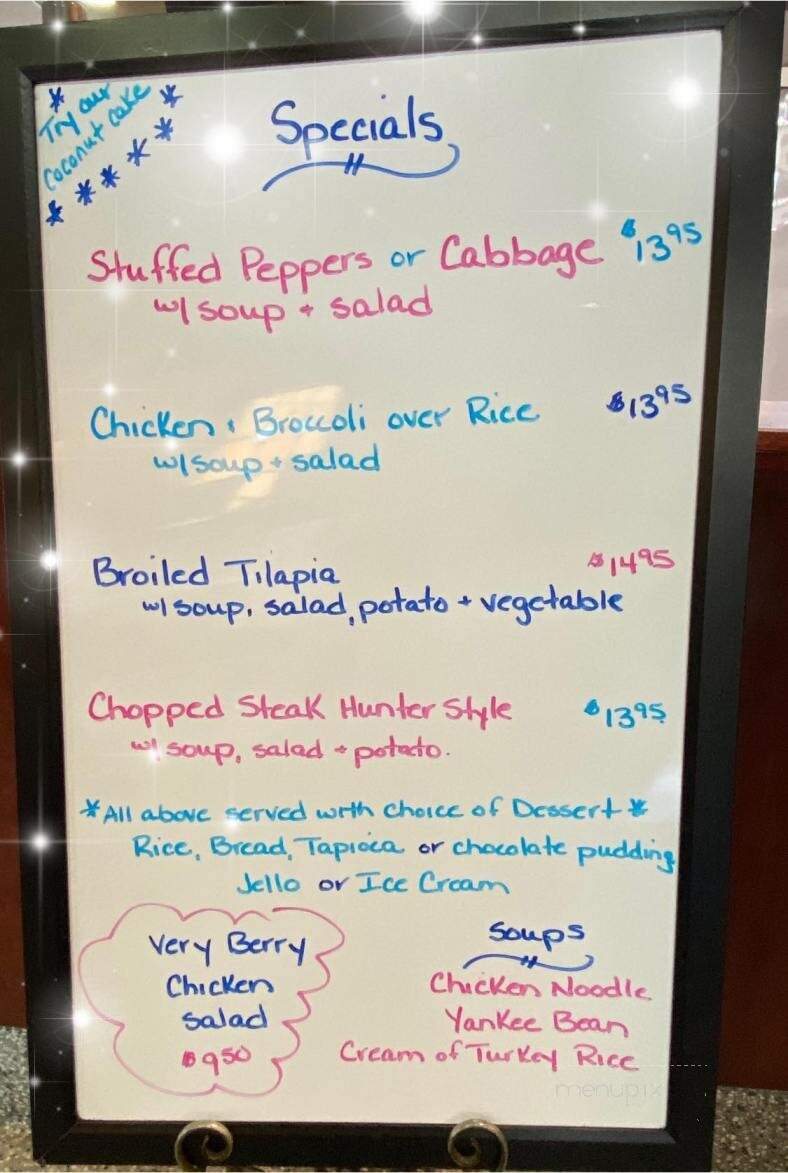 Try our
coconut cake
Specials
Stuffed Peppers or Cabbage $13.95
w/ soup + salad
Chicken + Broccoli over Rice $13.95
w/ soup + salad
Broiled Tilapia $14.95
w/ soup, salad, potato + vegetable
Chopped Steak Hunter Style $13.95
w/ soup, salad + potato.
*All above served with choice of Dessert*
Rice, Bread, Tapioca or chocolate pudding
Jello or Ice Cream
Very Berry
Chicken
Salad
$9.50
Soups
Chicken Noodle
Yankee Bean
Cream of Turkey Rice
menupix